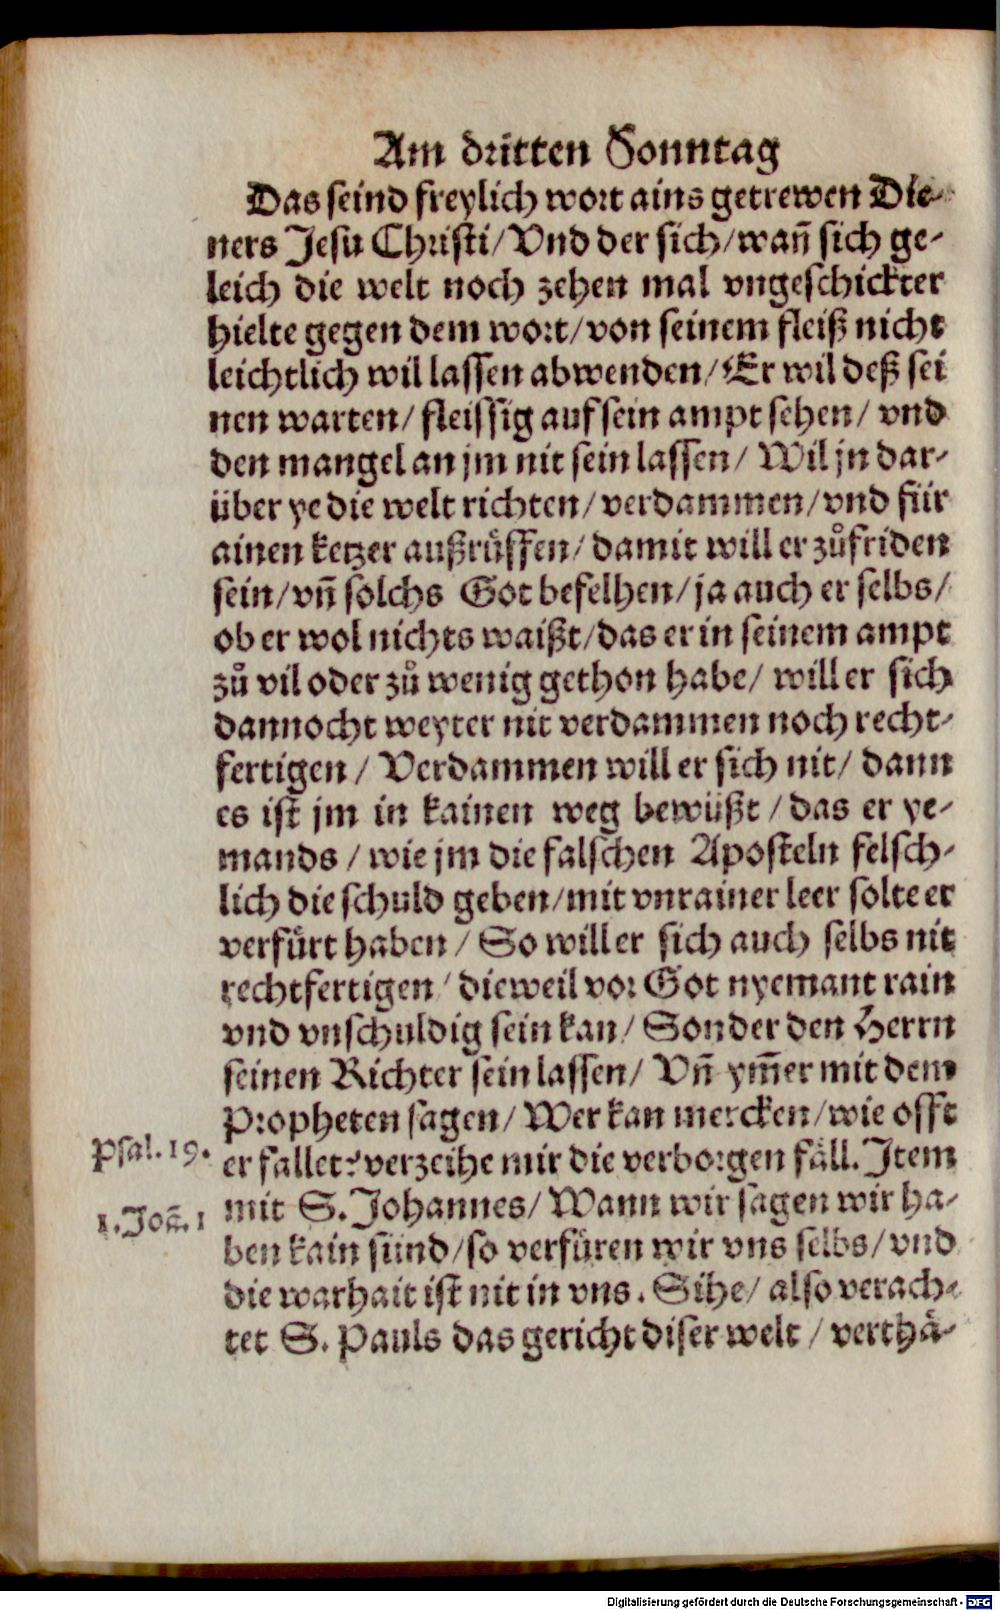 Am dritten Sonntag
Das seind freylich wort ains getrewen Die-
ners Jesu Christi/ Vnd der sich/ wañ sich ge-
leich die welt noch zehen mal vngeschickter
hielte gegen dem wort/ von seinem fleiß nicht
leichtlich wil lassen abwenden/ Er wil deß sei
nen warten/ fleissig auf sein ampt sehen/ vnd
den mangel an jm nit sein lassen/ Wil jn dar-
über ye die welt richten/ verdammen/ vnd für
ainen ketzer außrüffen/ damit will er zůfriden
sein/ vñ solchs Got befelhen/ ja auch er selbs/
ob er wol nichts waißt/ das er in seinem ampt
zů vil oder zů wenig gethon habe/ will er sich
dannocht weyter nit verdammen noch recht-
fertigen/ Verdammen will er sich nit/ dann
es ist jm in kainen weg bewüßt/ das er ye-
mands/ wie jm die falschen Aposteln felsch-
lich die schuld geben/ mit vnrainer leer solte er
verfürt haben/ So will er sich auch selbs nit
rechtfertigen/ dieweil vor Got nyemant rain
vnd vnschuldig sein kan/ Sonder den Herrn
seinen Richter sein lassen/ Vñ ym̃er mit dem
Propheten sagen/ Wer kan mercken/ wie offt
Psal. 19. er fallet? verzeihe mir die verborgen fäll. Item
1. Joã. 1 mit S. Johannes/ Wann wir sagen wir ha-
ben kain sünd/ so verfüren wir vns selbs/ vnd
die warhait ist nit in vns. Sihe/ also verach-
tet S. Pauls das gericht diser welt/ verthä-
Digitalisierung gefördert durch die Deutsche Forschungsgemeinschaft - DFG